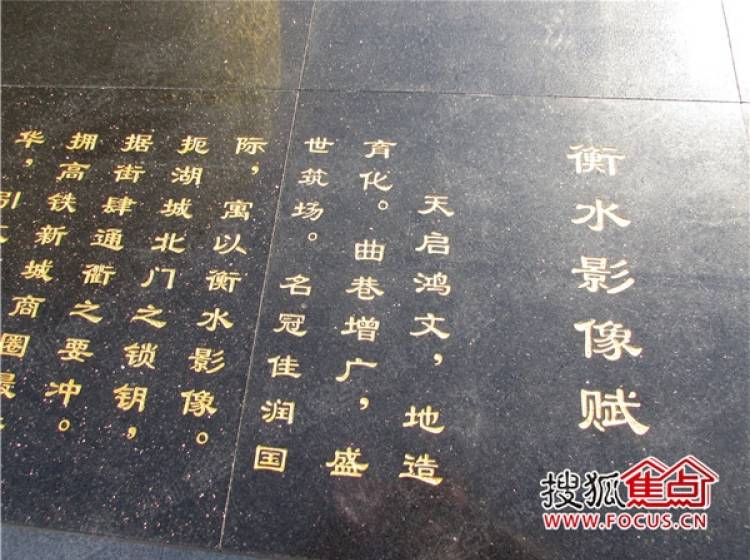 衡水影像赋
天启鸿文，地造
育化。曲巷增广，盛
世筑场。名冠佳润国
际，寓以衡水影像。
扼湖城北门之锁钥，
据街肆通衢之要冲。
拥高铁新城商圈最
华，引
搜狐焦点
WWW.FOCUS.CN